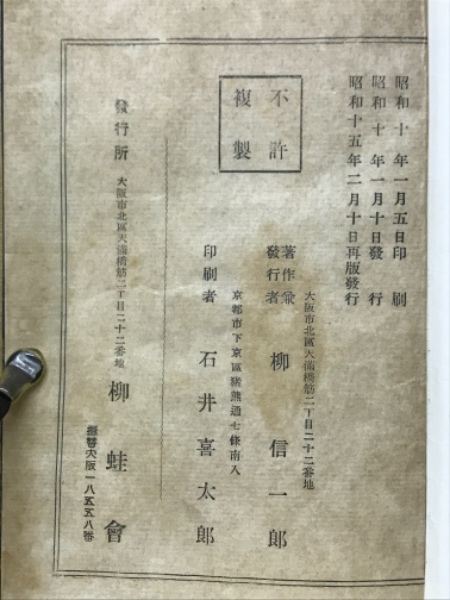 昭和十年一月五日印刷
昭和十年一月十日發行
昭和十五年二月十日再版發行
不許
複製
大阪市北區天滿橋筋二丁目二十二番地
著作兼
發行者
柳信一郎
京都市下京區猪熊通七條南入
印刷者 石井喜太郎
發行所 大阪市北區天滿橋筋二丁目二十二番地 柳蛙會
振替大阪一八五五八番